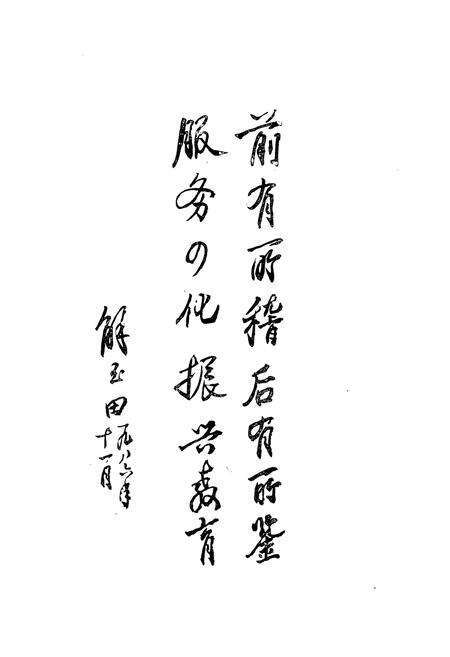 前有所稽后有所鉴
服务の化振兴教育
解玉田一九八六年
十一月